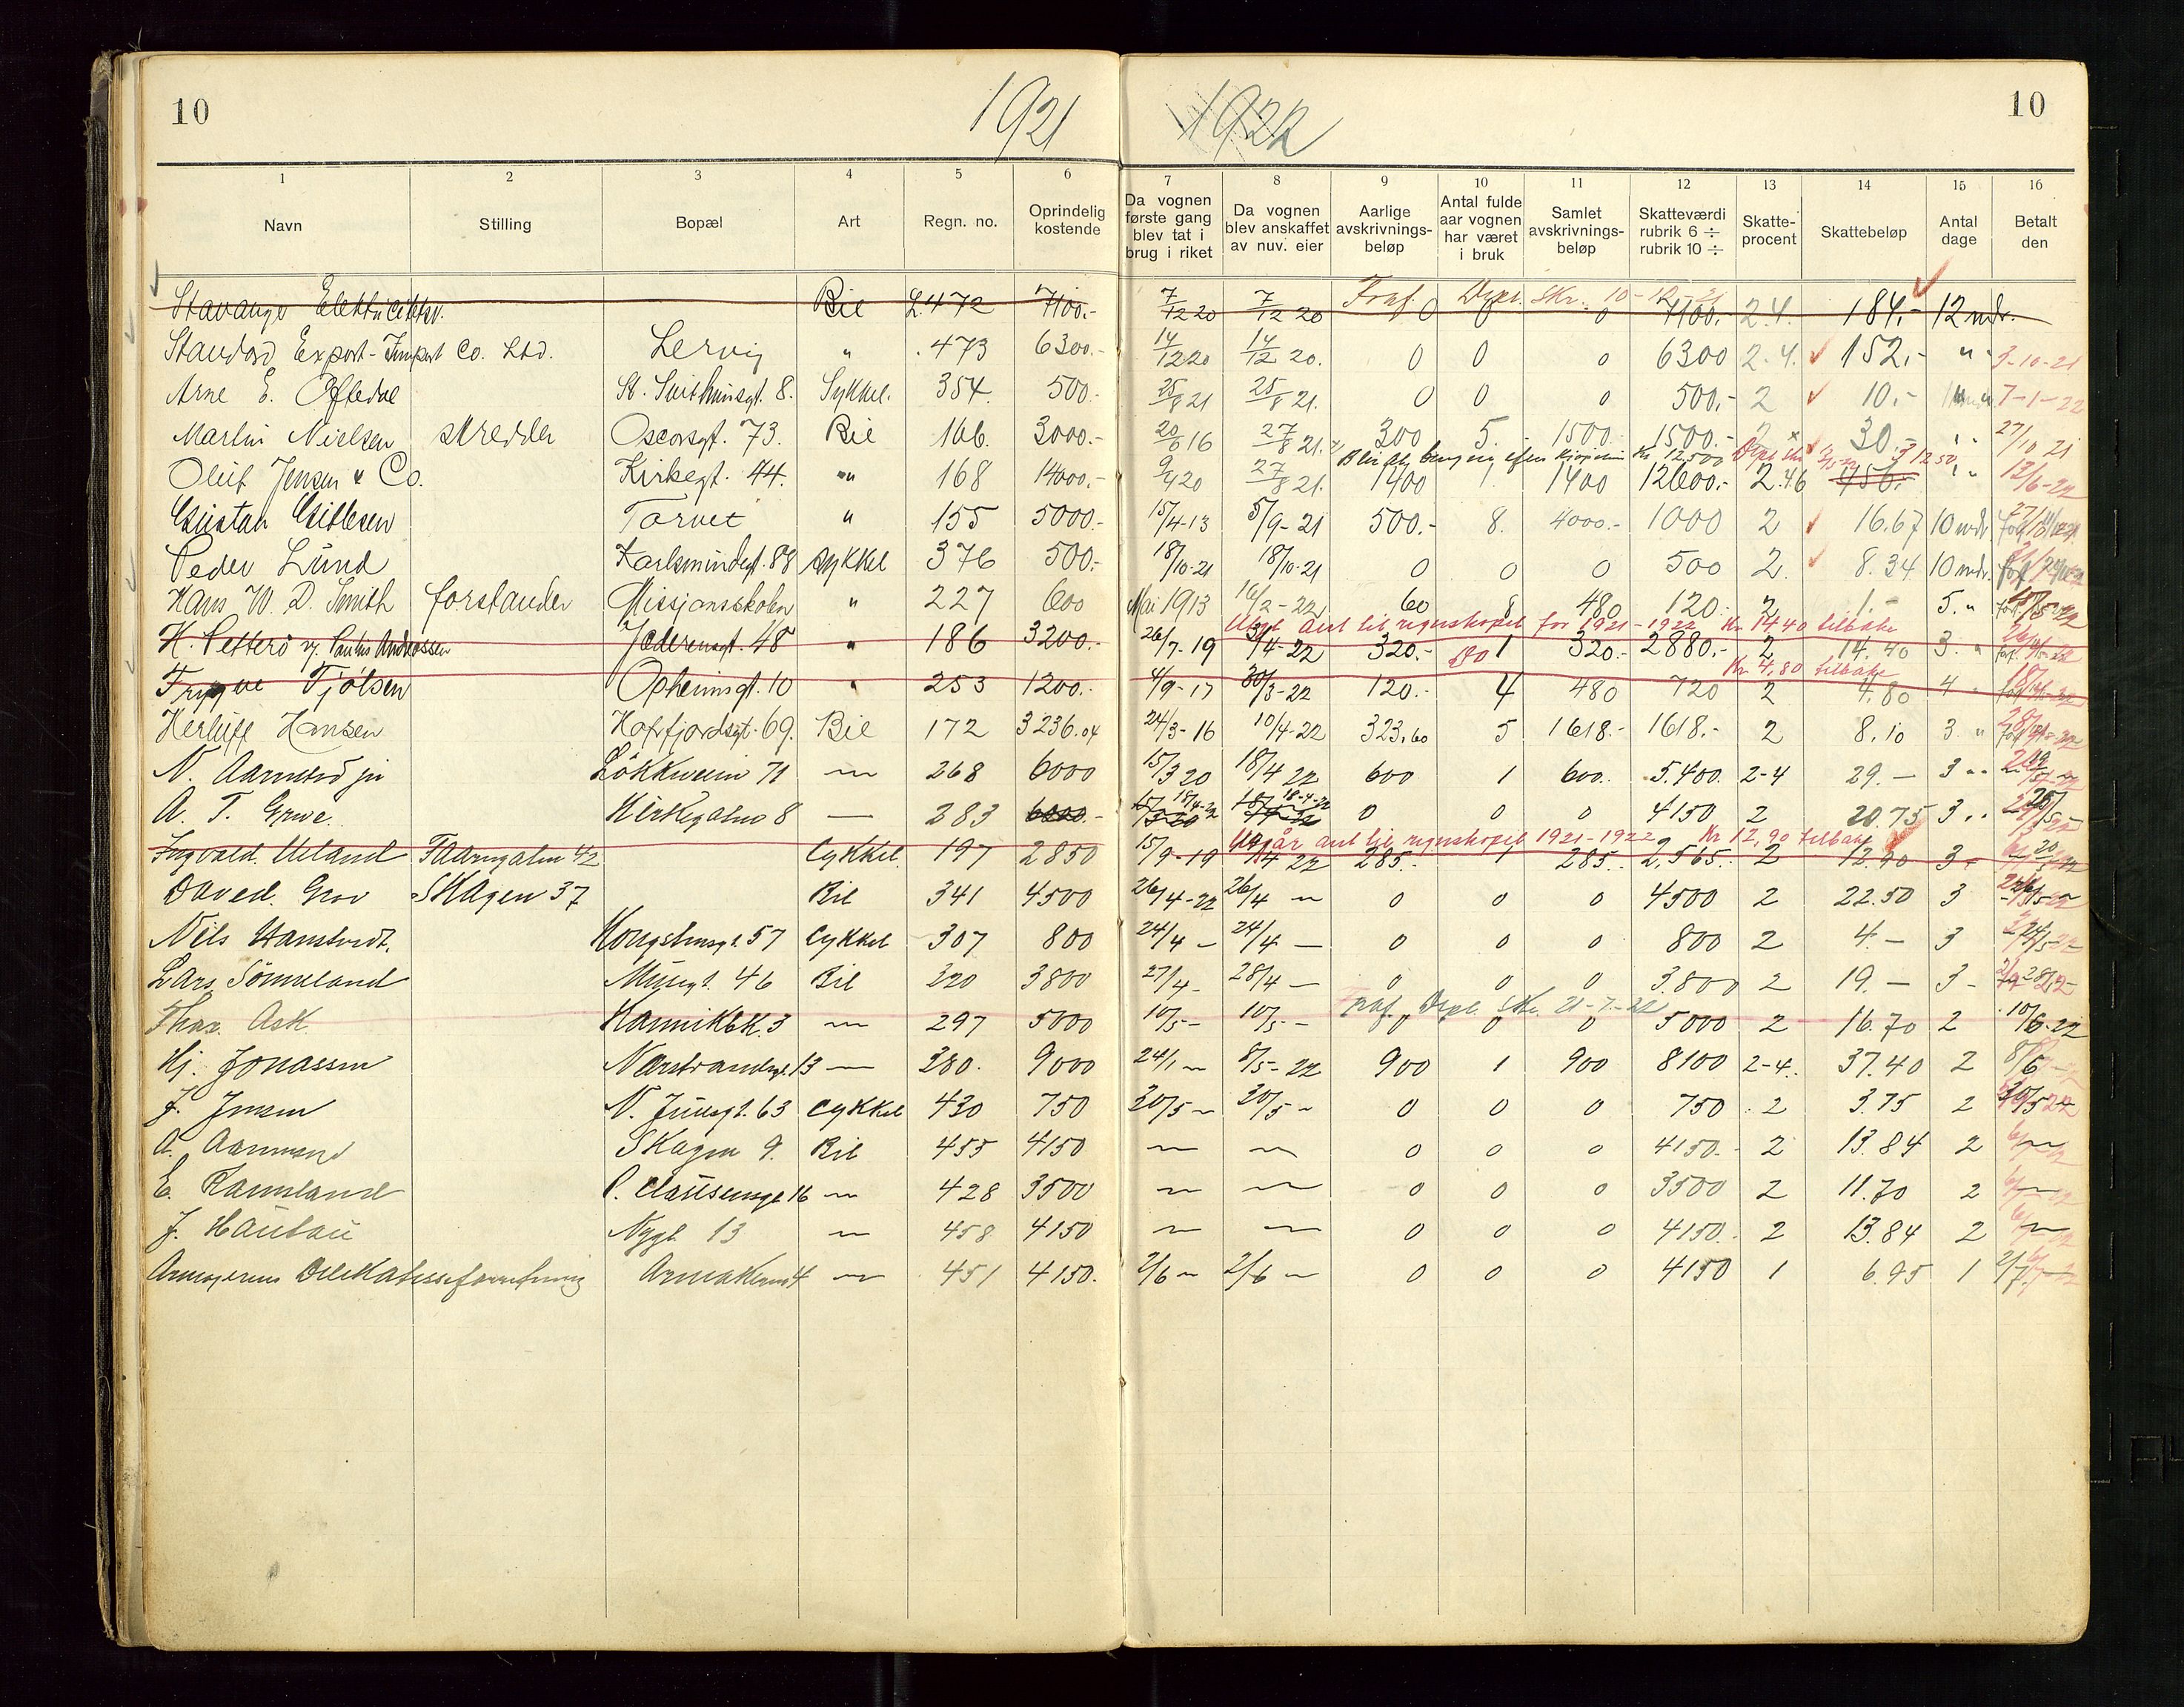 10 1921 1922 10
1 2 3 4 5 6 7 8 9 10 11 12 13 14 15 16
Navn Stilling Bopæl Art Regn. no. Oprindelig kostende Da vognen første gang blev tat i brug i riket Da vogn blev anskaffet av nuv. eier Aarlige avskrivnings-beløp Antal fulde aar vognen har været i bruk Samlet avskrivnings-beløp Skatteværdi rubrik 6 ÷ rubrik 10 ÷ Skatte-procent Skattebeløp Antal dage Betalt den
Fraf. Dept. Skr. 10-12-21
Stavanger Elektricitetsv. Bil L.472 7100.- 7/12 20 7/12 20 0 0 0 7100.- 2.4. 184.- 12 mdr.
Standard Export-Import Co. Ltd. Lervig " 473 6300.- 14/12 20 14/12 20. 0 0 0 6300 2.4. 152.- " 3-10-21
Arne E. Oftedal St. Svithunsgt. 8. Sykkel. 354 500.- 25/8 21 25/8 21. 0 0 0 500.- 2 10.- 7-1-22
Martin Nielsen skredder Oscarsgt. 73. Bil 166. 3000.- 20/6 16 27/8 21. 300 5. 1500.- 1500.- 2 30.- " 27/10 21
Oluf Jensen & Co. Kirkegt. 44. " 168 14000.- 9/4 20 27/8 21. 1400 1 1400 12600.- 2.46 450.- " 13/6-22
Gustav Gitlesen Torvet " 155 5000.- 15/4-13 5/9-21 500.- 8. 4000.- 1000 2 16.67 10 mdr.
Peder Lund Karlsmindegt. 88 sykkel 376 500.- 18/10-21 18/10-21 0 0 0 500 2. 8.34 10 mdr.
Hans W. D. Smith forstander Missjonsskolen " 227 600 Mai 1913 16/2-22 60 8 480 120.- 2 1.- 5. "
Utgt. aut til regnskapet for 1921-1922 Kr. 14.40 tilbake
H. Petterö v/ Paulus Andreassen Jederensgt. 48 " 186 3200.- 26/7-19 3/4-22 320.- 1 320.- 2880.- 2 14.40 3. "
Kr. 4.80 tilbake
Trygve Tjølsen Opheimsgt. 10 " 253 1200.- 4/9-17 30/3-22 120.- 4 480 720 2 4.80 4
Herluff Hansen Hafrfjordsgt. 69. Bil 172 3236.04 24/3-16 10/4-22 323.60 5 1618.- 1618.- 2 8.10 3. "
N. Aarrestad jr Lökkeveien 71 — 268 6000 15/3 20 18/4 22 600 1 600. 5.400. 2-4 29.— 3 "
A. T. Grue. Kirkegaten 8 — 283 6000.- 18/4-22 18-4-22 0 0 0 4150 2 20.75 3 "
Utgår aut til regnskapet 1921-1922 Kr 12,90 tilbake
Ingvald Ueland Taarngaten 42 Cykkel 197 2850 15/9-19 19/4 22 285.- 1 285.- 2,565.- 2 12.90 3 -
David Grov Skagen 37 Bil 341 4500 26/4-22 26/4 — 0 0 0 4500 2 22.50 3
Nils Hanstvedt. Kongsteinsgt. 57 Cykkel 307 800 24/4 — 24/4 — 0 0 0 800 2 4.— 3
Lars Sömmeland Musegt. 46 Bil 320 3800 27/4 - 28/4 — 0 0 0 3.800 2 19.— 3 -
Fraf. Dept. Skr. 21-7-22
Thor. Ask. 3 — 297 5000 10/5 - 10/5 - 0 0 0 5000 2 16.70 2 10/6-22
Hj. Jonassen Nærstrandsgt. 13 — 280. 9000 24/1 — 8/5-22 900 1 900 8100 2-4. 37.40 2 8/6
J. Jensen N. Juelsgt. 63 Cykkel 430 750 20/5 — 20/5 — 0 0 0 750 2 3.75 2 30/5
A. Aarrestad Skagen 9. Bil 455 4150 — — 0 0 0 4150.- 2 13.84 2 —
E. Ramsland P. Clausensgt 16 — 428 3500 — — 0 0 0 3500 2 11.70 2 —
J. Haubau Nygt. 13 — 458 4150 — — 0 0 0 4150. 2 13.84 2 —
Armagerens Delikatesseforretning — 451 4150. 2/6 — 2/6 — 0 0 0 4150 1 6.95 1 2/7